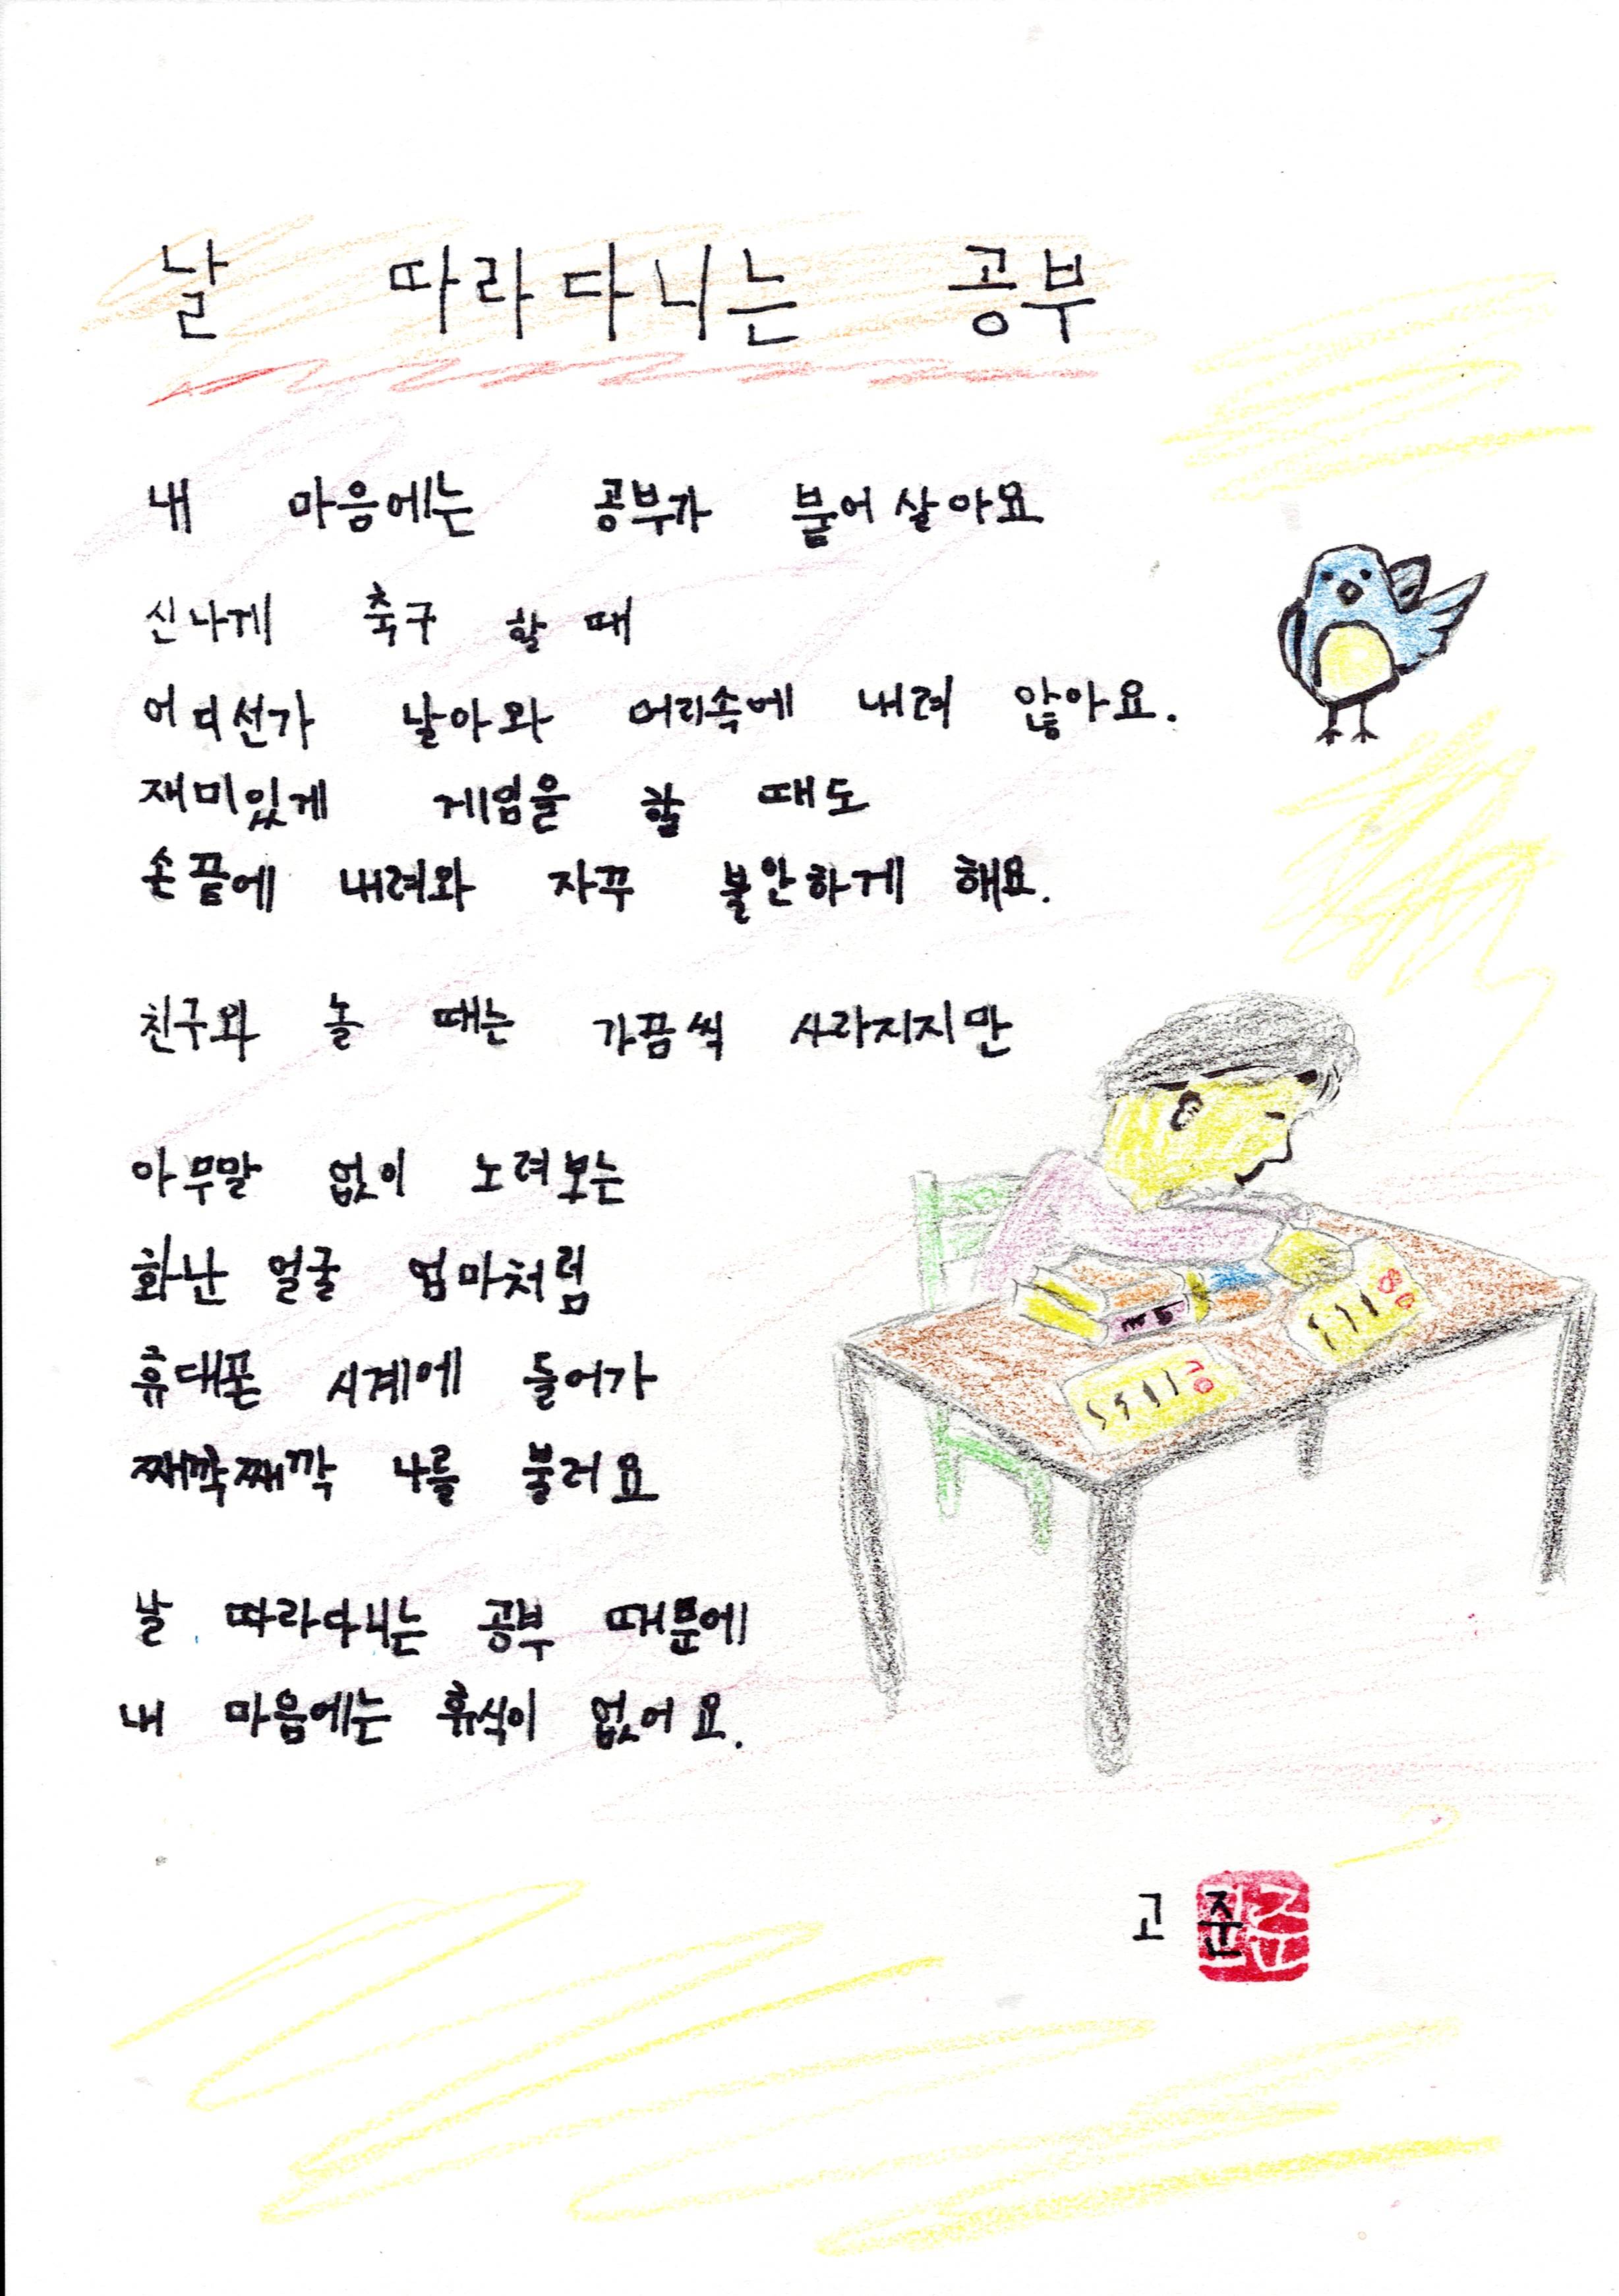 날 따라다니는 공부
내 마음에는 공부가 붙어살아요
신나게 축구 할 때
어디선가 날아와 머리속에 내려 앉아요.
재미있게 게임을 할 때도
손끝에 내려와 자꾸 불안하게 해요.
친구와 놀 때는 가끔씩 사라지지만
아무말 없이 노려보는
화난 얼굴 엄마처럼
휴대폰 시계에 들어가
째깍째깍 나를 불러요
날 따라다니는 공부 때문에
내 마음에는 휴식이 없어요.
80
70
고 준